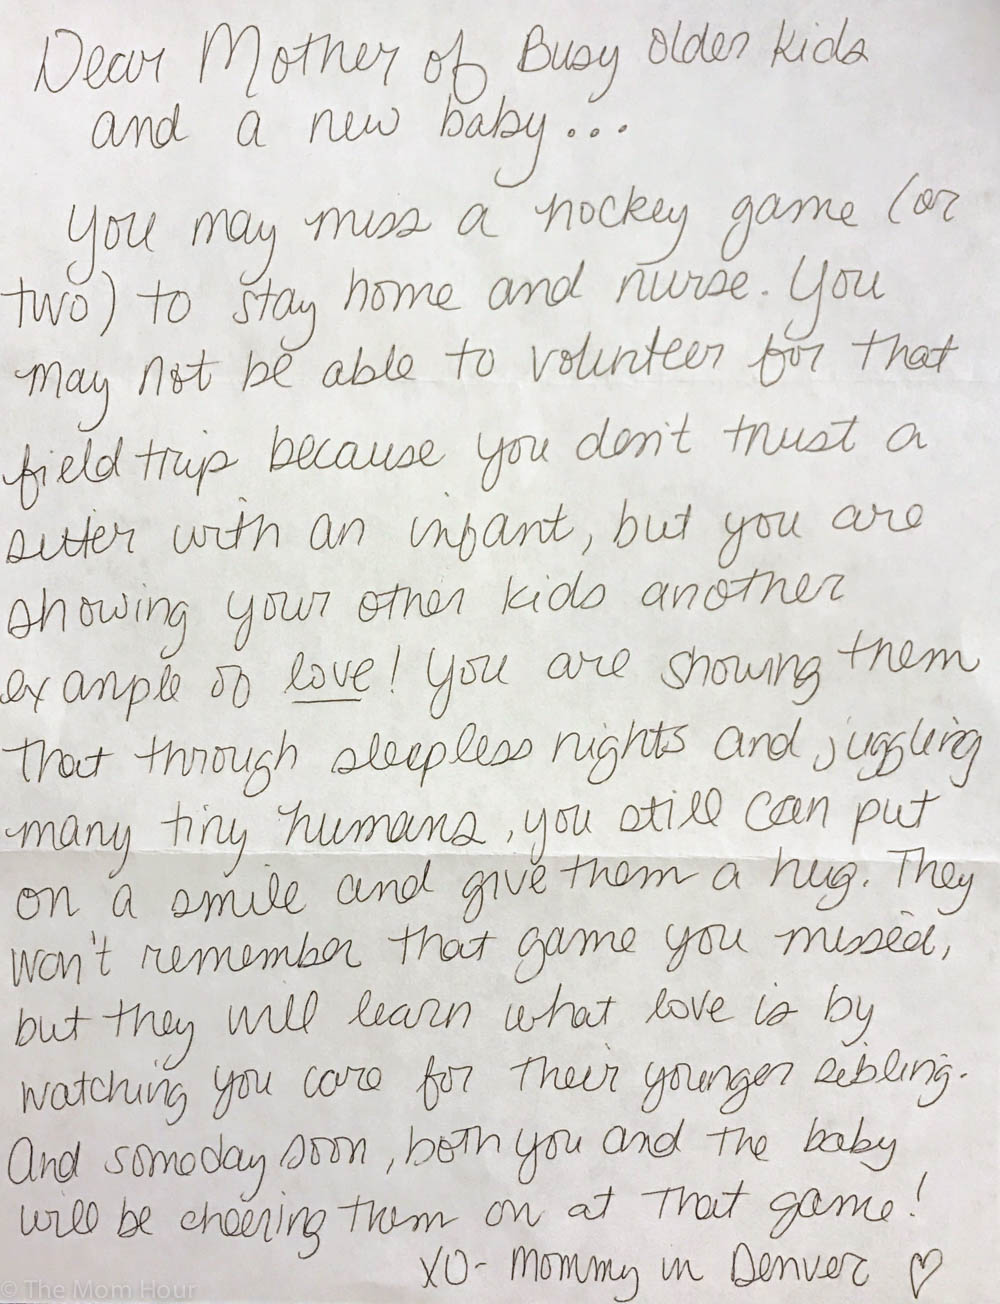 Dear Mother of Busy older kids
and a new baby...
You may miss a hockey game (or
two) to stay home and nurse. You
may not be able to volunteer for that
field trip because you don't trust a
sitter with an infant, but you are
showing your other kids another
example of love! You are showing them
that through sleepless nights and juggling
many tiny humans, you still can put
on a smile and give them a hug. They
won't remember that game you missed,
but they will learn what love is by
watching you care for their younger sibling.
And someday soon, both you and the baby
will be cheering them on at that game!
XO- Mommy in Denver ♡
© The Mom Hour